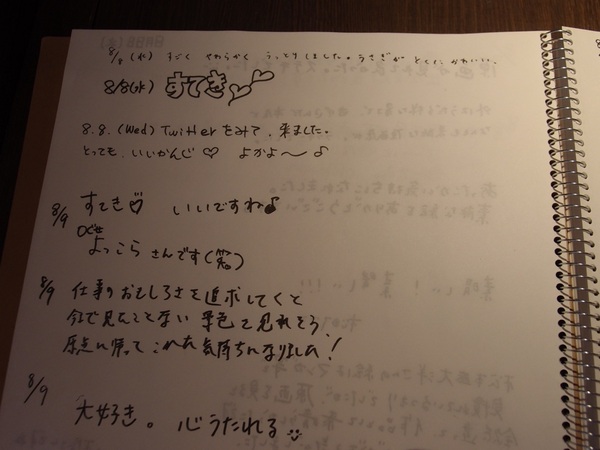 8/8 (水) すごく やわらかく うっとりしました。うさぎが とくに かわいい...
8/8(水) すてき
8.8.(Wed) Twitterをみて、来ました。
とっても、いいかんじ♡ よかよ〜♪
8/9 すてき♡ いいですね♪
よっこら さんです(笑)
8/9 仕事のおもしろさを追求してくと
今まで見たことない 景色を見れそう
原点に帰って これた気持ちになりました!
8/9
大好き。 心うたれる